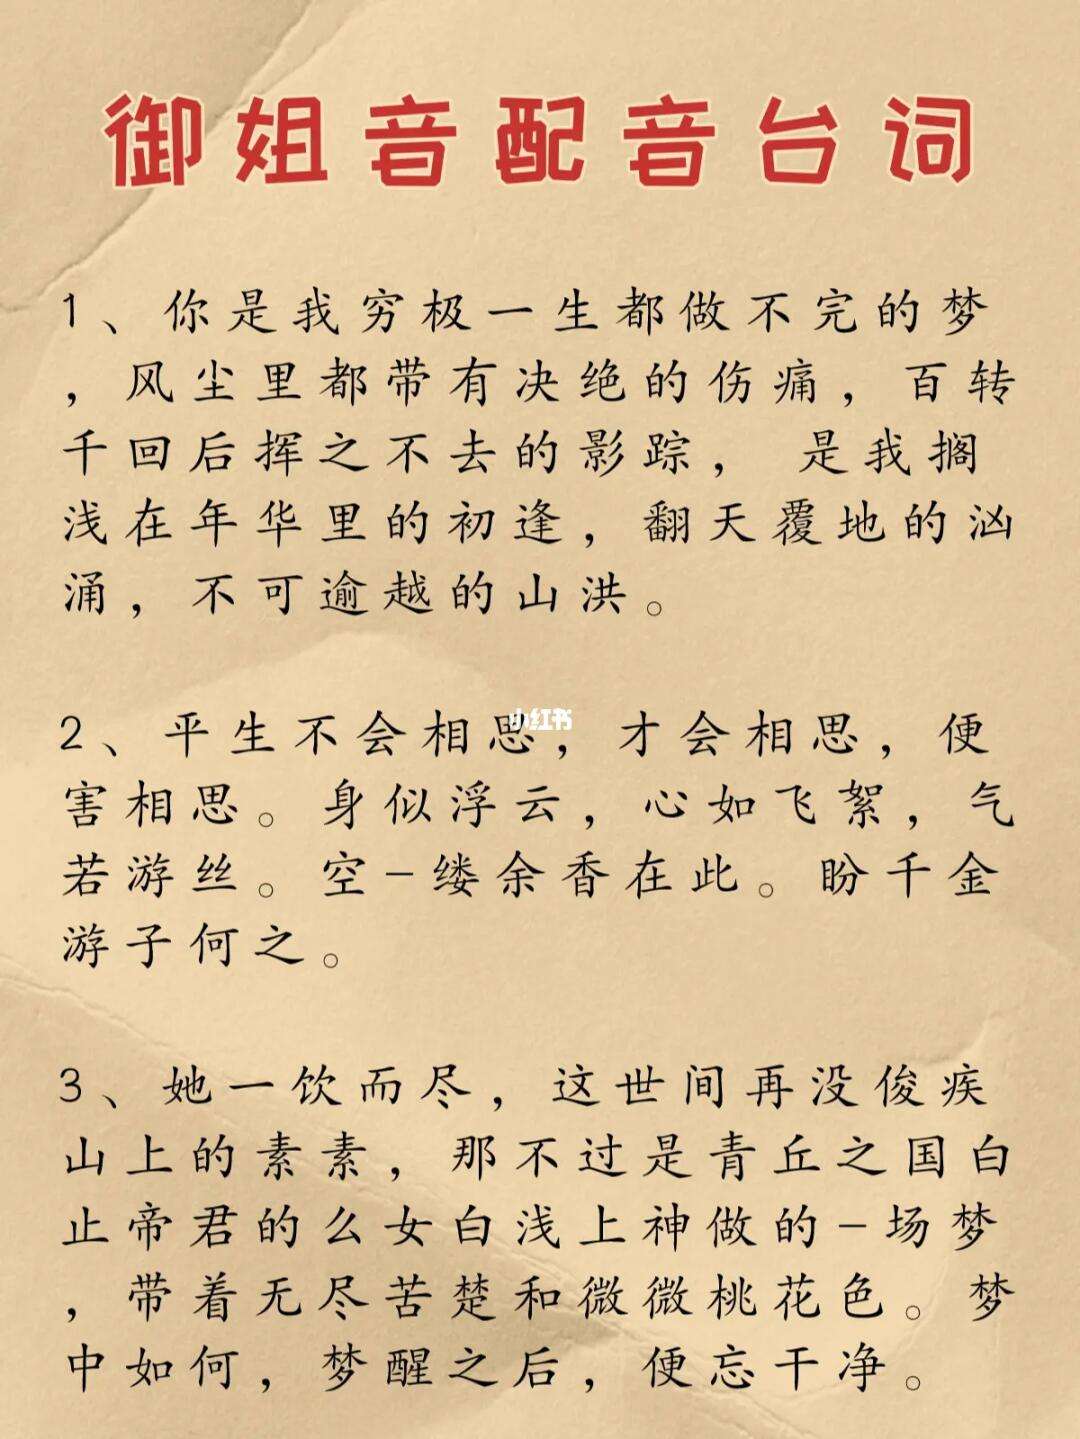 御姐音配音台词
1、你是我穷极一生都做不完的梦
，风尘里都带有决绝的伤痛，百转
千回后挥之不去的影踪， 是我搁
浅在年华里的初逢，翻天覆地的汹
涌，不可逾越的山洪。
2、平生不会相思，才会相思，便
害相思。身似浮云，心如飞絮，气
若游丝。空-缕余香在此。盼千金
游子何之。
小红书
3、她一饮而尽，这世间再没俊疾
山上的素素，那不过是青丘之国白
止帝君的么女白浅上神做的-场梦
，带着无尽苦楚和微微桃花色。梦
中如何，梦醒之后，便忘干净。